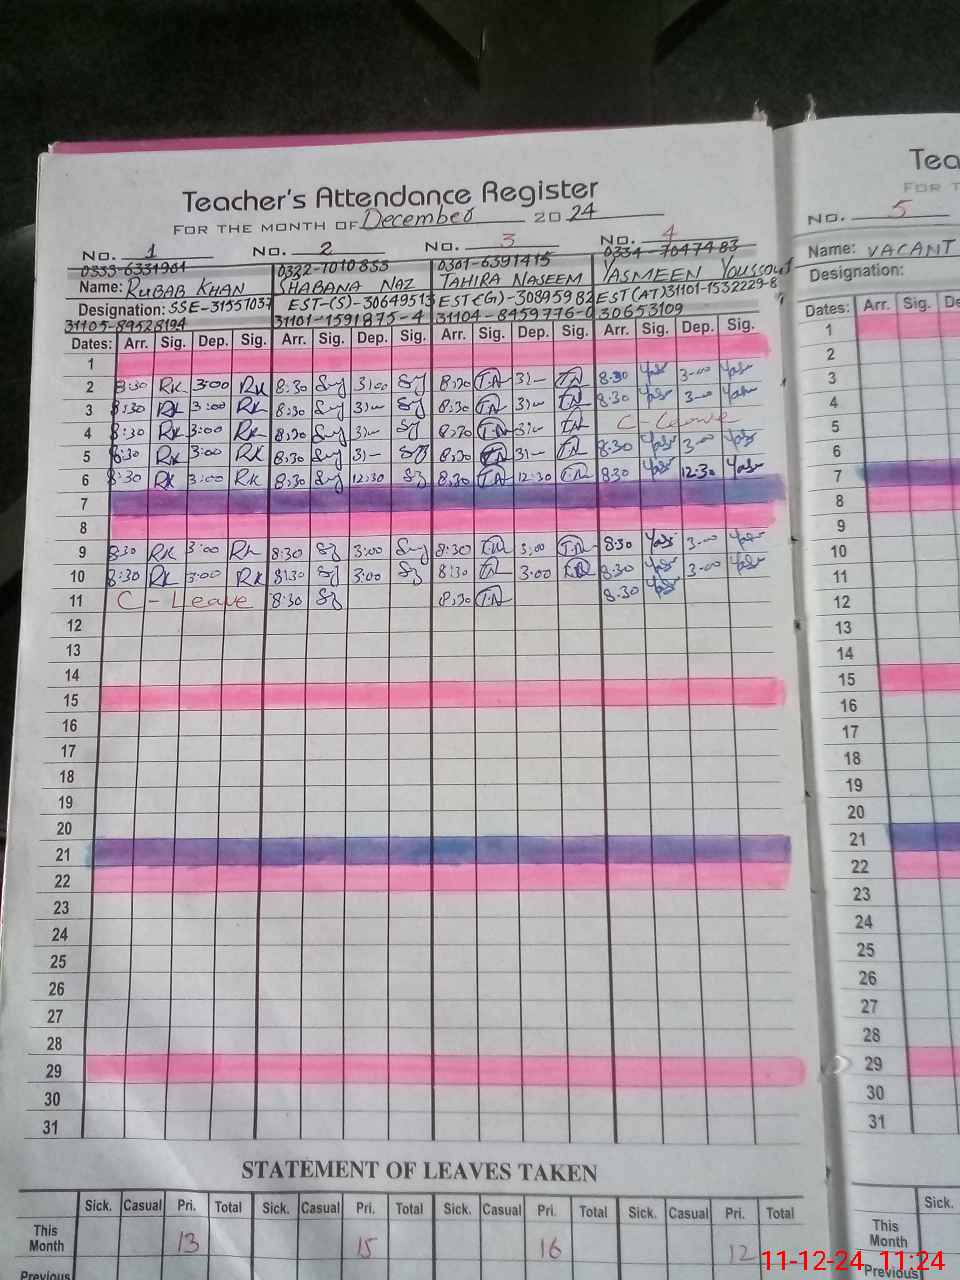 Teacher's Attendance Register
FOR THE MONTH OF December 2024
No. 1 No. 2 No. 3 No. 4
0333-6331961 0322-1010855 0301-6391415 0334-7047483
Name: RUBAB KHAN SHABANA NAZ TAHIRA NASEEM YASMEEN YOUSSOUF
Designation: SSE-31551037 EST-(S)-30649513 EST(G)-30895982 EST(AT)31101-1532229-8
31105-89528194 31101-1591875-4 31104-8459776-0 30653109
Dates: Arr. Sig. Dep. Sig. Arr. Sig. Dep. Sig. Arr. Sig. Dep. Sig. Arr. Sig. Dep. Sig.
1
2 8:30 RK 3:00 RK 8:30 Sy 3:00 Sy 8:30 T.N 3:- T.N 8:30 Yas 3-00 Yas
3 8:30 RK 3:00 RK 8:30 Sy 3:- Sy 8:30 T.N 3:- T.N 8:30 Yas 3-00 Yas
4 8:30 RK 3:00 RK 8:30 Sy 3:- Sy 8:30 T.N 3:- T.N C-Leave
5 8:30 RK 3:00 RK 8:30 Sy 3:- Sy 8:30 T.N 3:- T.N 8:30 Yas 3-00 Yas
6 8:30 RK 3:00 RK 8:30 Sy 12:30 Sy 8:30 T.N 12:30 T.N 8:30 Yas 12:30 Yas
7
8
9 8:30 RK 3:00 RK 8:30 Sy 3:00 Sy 8:30 T.N 3:00 T.N 8:30 Yas 3-00 Yas
10 8:30 RK 3:00 RK 8:30 Sy 3:00 Sy 8:30 T.N 3:00 T.N 8:30 Yas 3-00 Yas
11 C-Leave 8:30 Sy 8:30 T.N 8:30 Yas
12
13
14
15
16
17
18
19
20
21
22
23
24
25
26
27
28
29
30
31
STATEMENT OF LEAVES TAKEN
Sick. Casual Pri. Total Sick. Casual Pri. Total Sick. Casual Pri. Total Sick. Casual Pri. Total
This Month 13 15 16 12
Previous
Tea
FOR T
No. 5
Name: VACANT
Designation:
Dates: Arr. Sig. De
1
2
3
4
5
6
7
8
9
10
11
12
13
14
15
16
17
18
19
20
21
22
23
24
25
26
27
28
29
30
31
Sick.
This
Month
Previous
11-12-24, 11:24